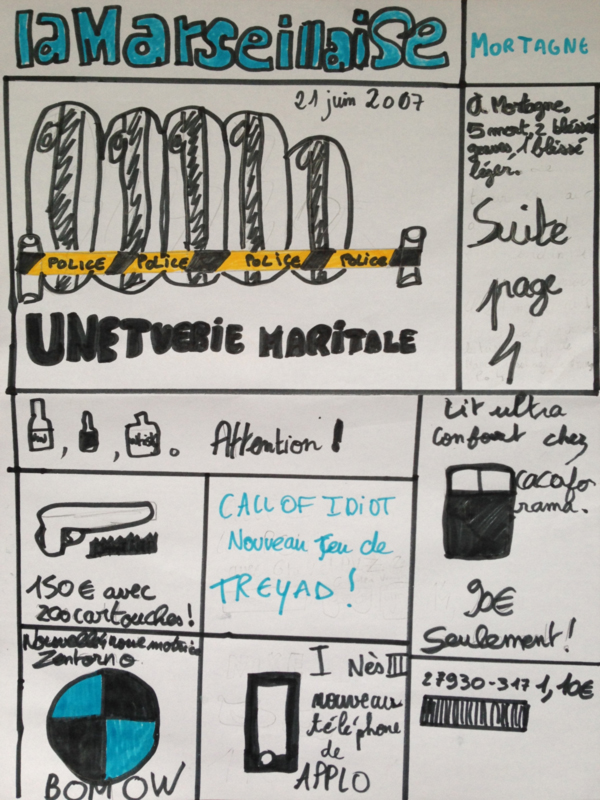 la Marseillaise
MORTAGNE
21 juin 2007
POLICE POLICE POLICE POLICE
UNE TUERIE MARITALE
à Mortagne,
5 mort, 2 blessés
graves, 1 blessé
léger.
Suite
page
4
, , . Attention !
Lit ultra
confort chez
cacafo
rama.
90€
Seulement !
150€ avec
200 cartouches !
CALL OF IDIOT
Nouveau jeu de
TREYAD !
Nouvelle roue motrice
Zentorno
BOMOW
I Nès III
nouveau
téléphone
de
APPLO
27930-317 1,10€